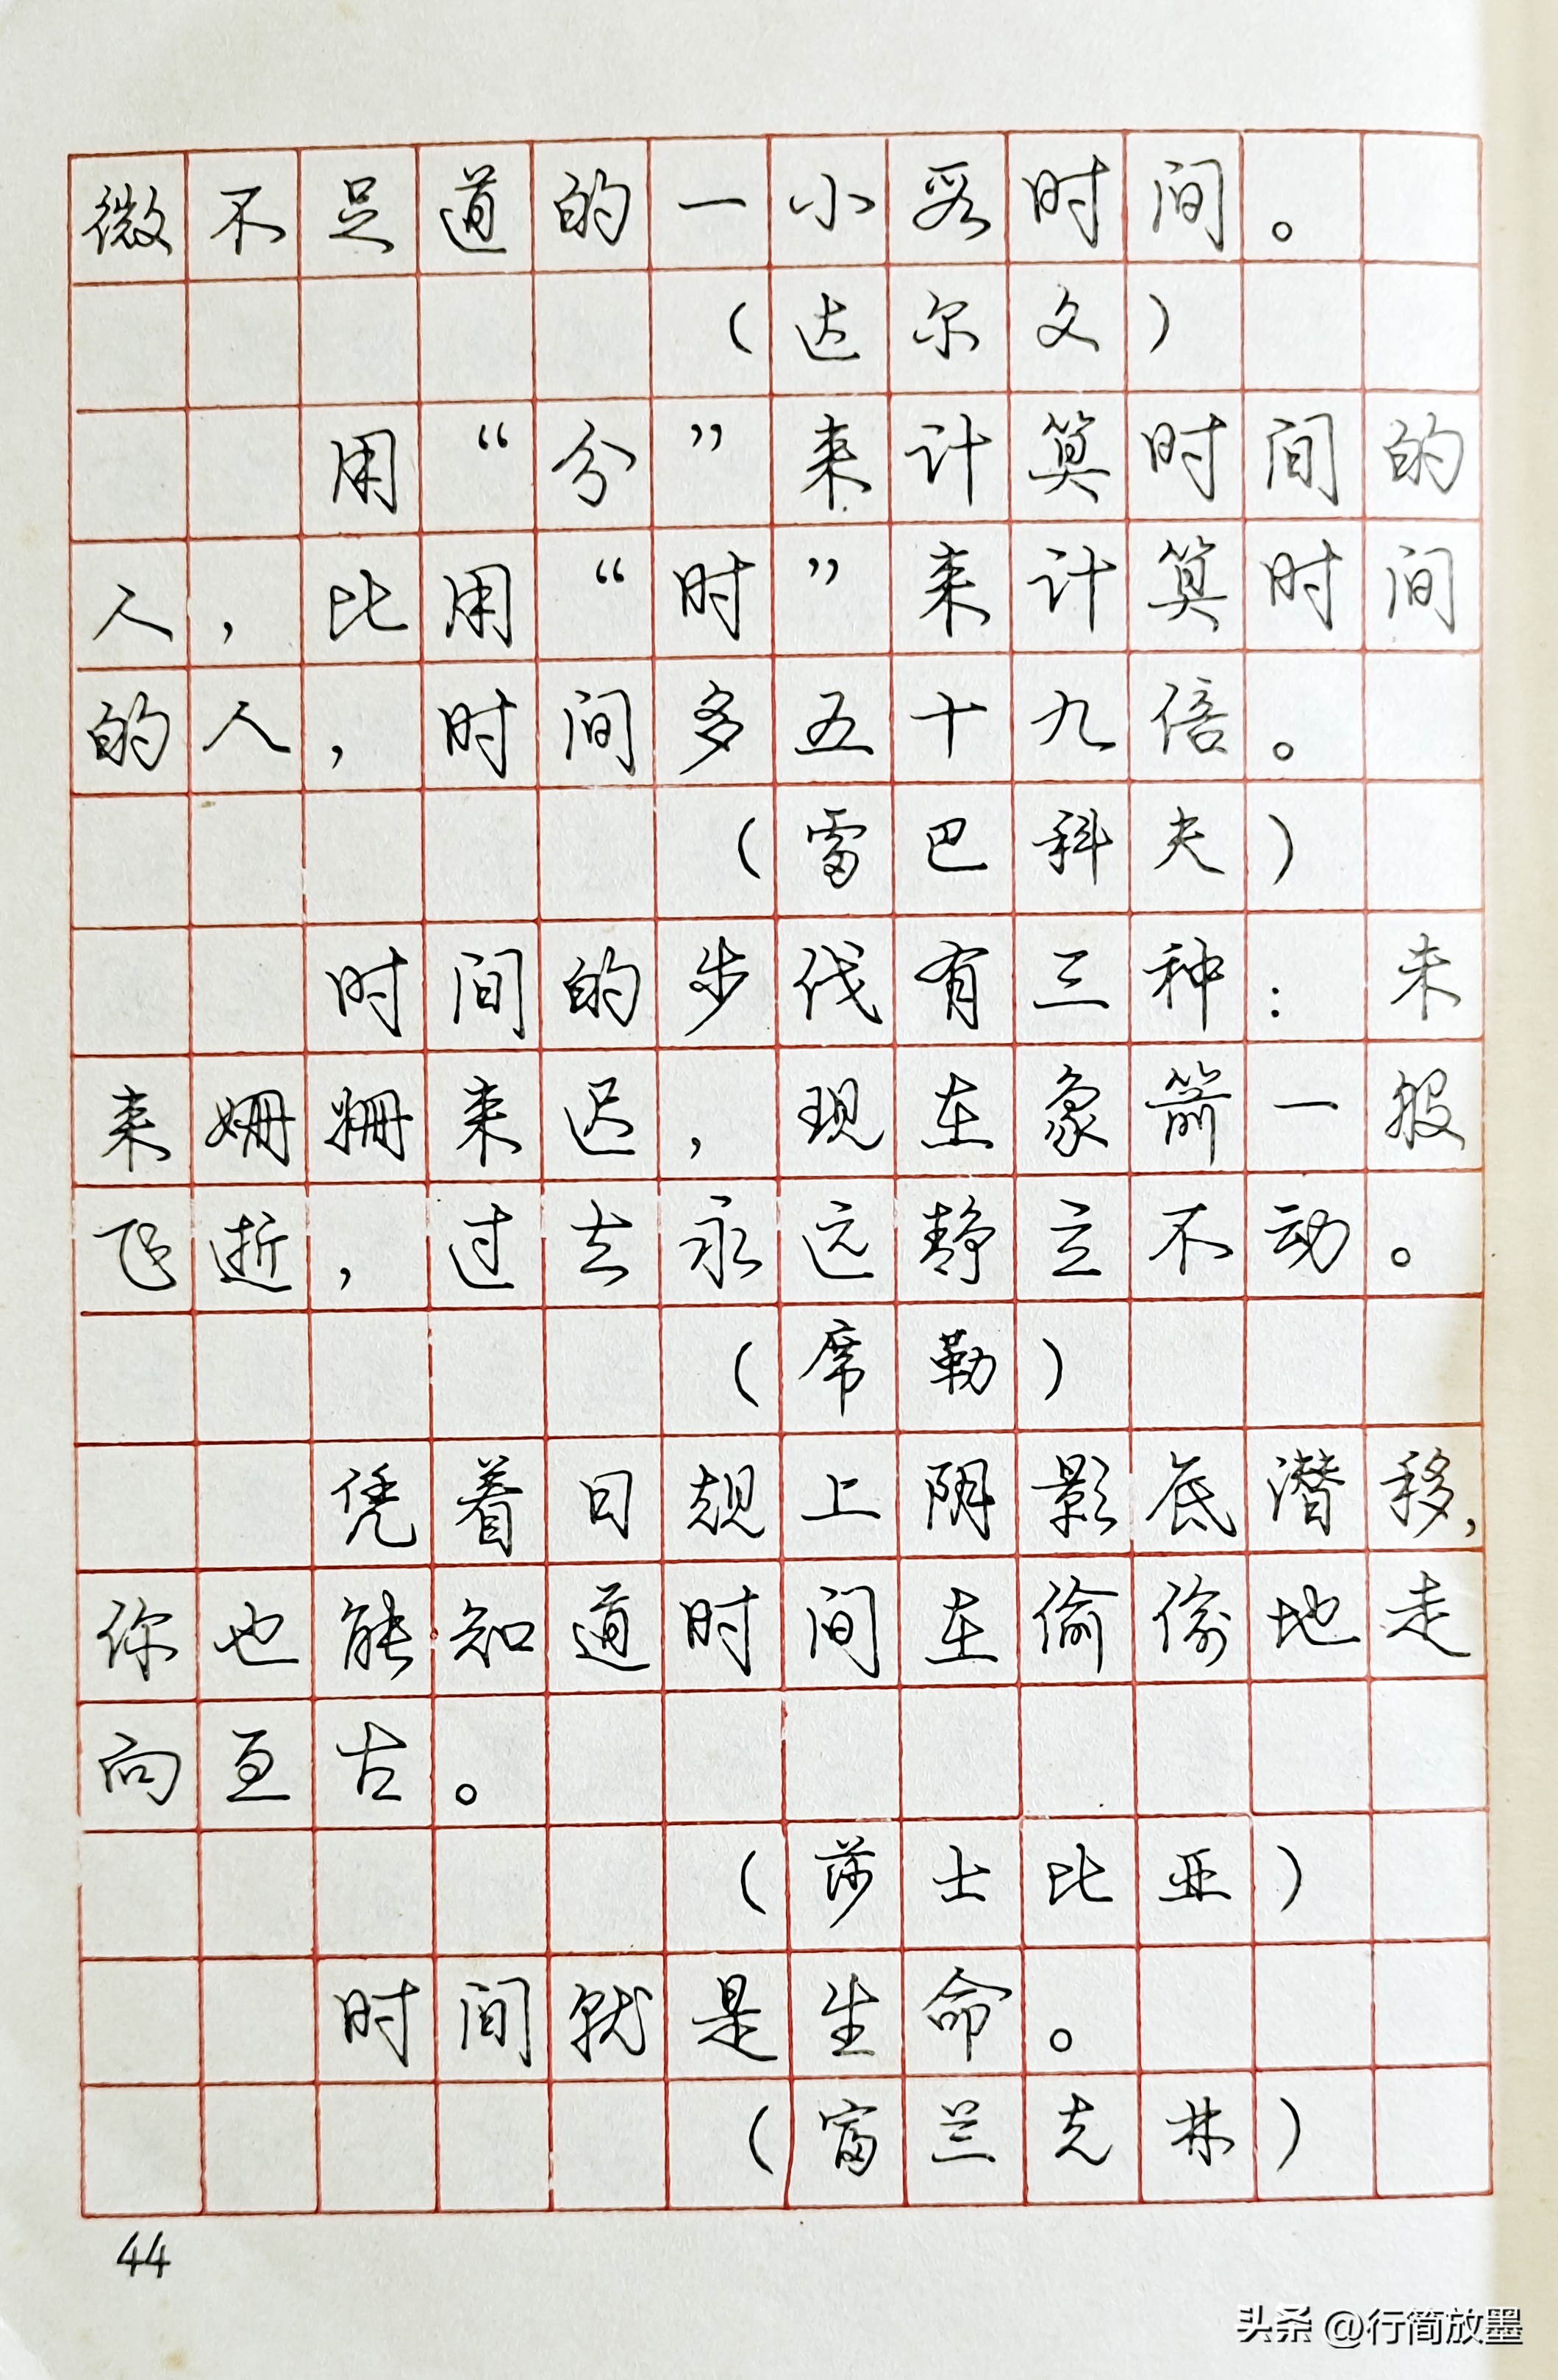 微不足道的一小段时间。
（达尔文）
用“分”来计算时间的
人，比用“时”来计算时间
的人，时间多五十九倍。
（雷巴科夫）
时间的步伐有三种：未
来姗姗来迟，现在象箭一般
飞逝，过去永远静立不动。
（席勒）
凭着日规上阴影底潜移，
你也能知道时间在偷偷地走
向亘古。
（莎士比亚）
时间就是生命。
（富兰克林）
44
头条 @行简放墨